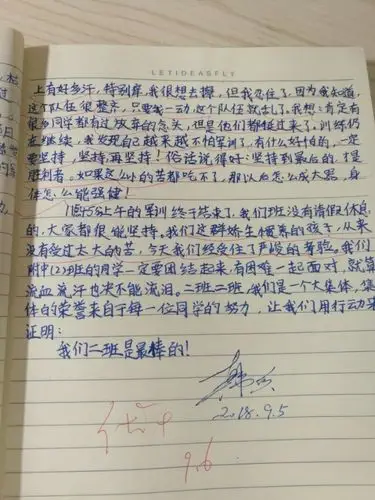 LETIDEASFLY
上有好多汗，特别痒，我很想去擦，但我忍住了，因为我知道，
这个队伍很整齐，只要我一动，这个队伍就乱了。我想：肯定有
很多同学都有过放弃的念头，但是他们都挺过来了，训练仍
在继续，我发现自己越来越不怕军训了，有什么好怕的，一定
要坚持，坚持，再坚持！俗话说得好：坚持到最后的，才是
胜利者，如果这么小的苦都吃不了，那以后怎么成大器，身
体怎么能强健！
11时55分上午的军训终于结束了，我们班没有请假休息
的，大家都很能坚持。我们这群娇生惯养的孩子，从来
没有受过太大的苦，今天我们经受住了严峻的考验。我们
附中(2)班的同学一定要团结起来，有困难一起面对，就算
流血流汗也决不能流泪。二班二班，我们是一个大集体，集
体的荣誉来自于每一位同学的努力，让我们用行动来
证明：
我们二班是最棒的！
2018.9.5
9.6